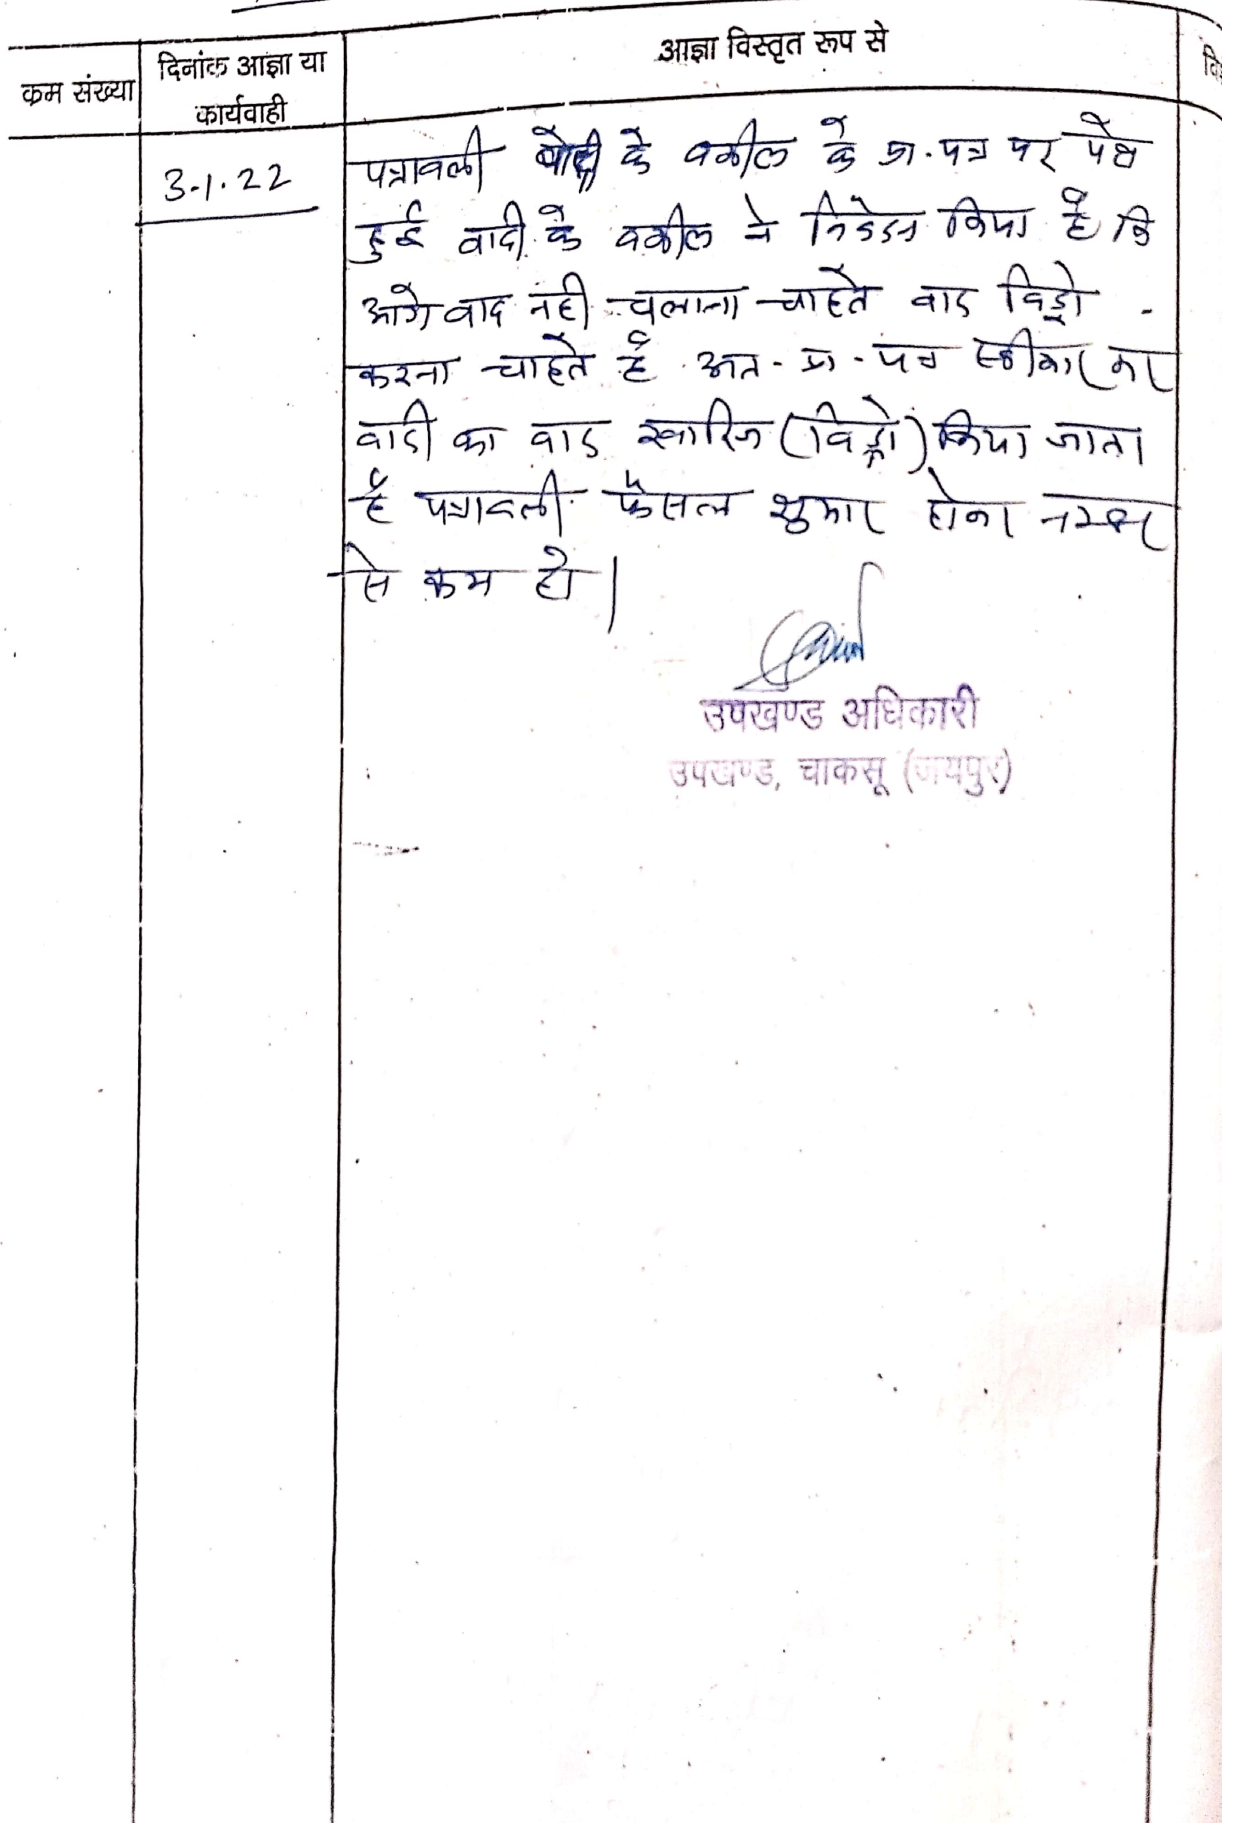 क्रम संख्या
दिनांक आज्ञा या
कार्यवाही
आज्ञा विस्तृत रूप से
3.1.22
पत्रावली वादी के वकील के प्रा.पत्र पर पेश
हुई वादी के वकील ने निवेदन किया है कि
आगे वाद नही चलाना चाहते वाद विड्रो
करना चाहते है. अत- प्रा-पत्र स्वीकार कर
वादी का वाद खारिज (विड्रो) किया जाता
है पत्रावली फैसल शुमार होकर नम्बर
से कम हो।
उपखण्ड अधिकारी
उपखण्ड, चाकसू (जयपुर)